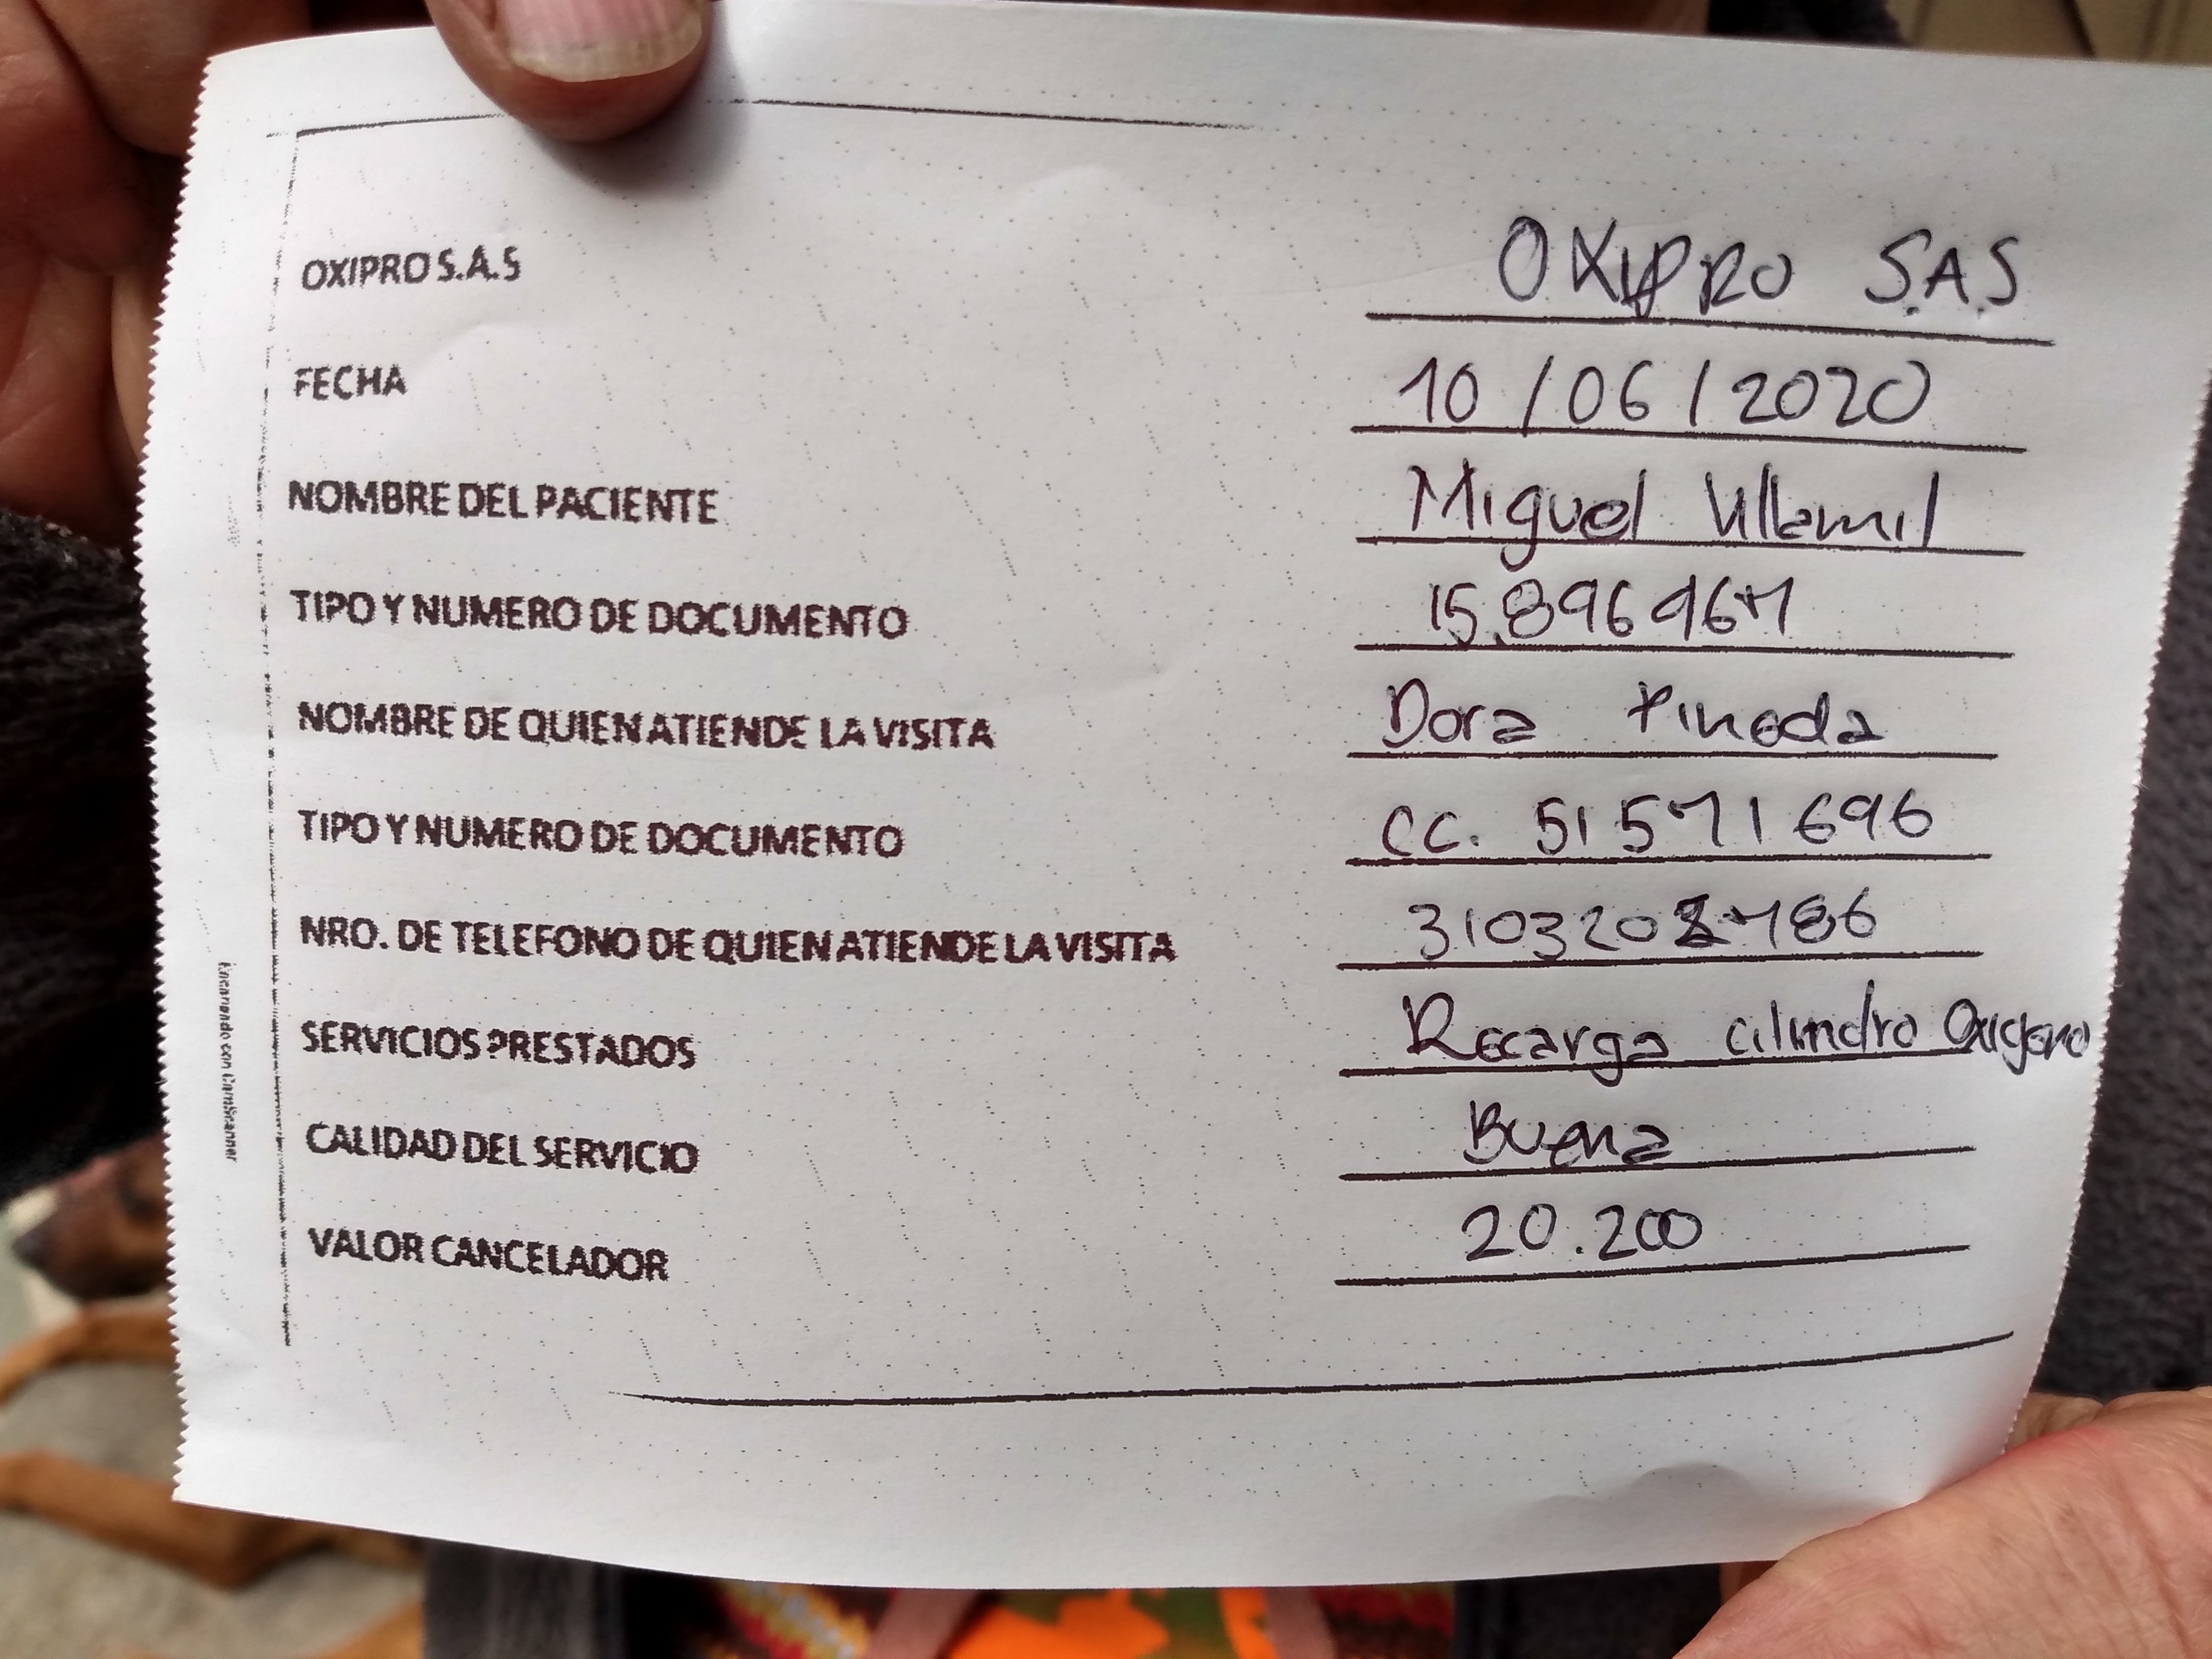 OXIPRO S.A.S OXIPRO S.A.S
FECHA 10/06/2020
NOMBRE DEL PACIENTE Miguel Villamil
TIPO Y NUMERO DE DOCUMENTO 15.896967
NOMBRE DE QUIEN ATIENDE LA VISITA Dora Pineda
TIPO Y NUMERO DE DOCUMENTO CC. 51571696
NRO. DE TELEFONO DE QUIEN ATIENDE LA VISITA
SERVICIOS PRESTADOS Recarga cilindro Oxigeno
CALIDAD DEL SERVICIO Buena
VALOR CANCELADOR 20.200
Escaneado con CamScanner